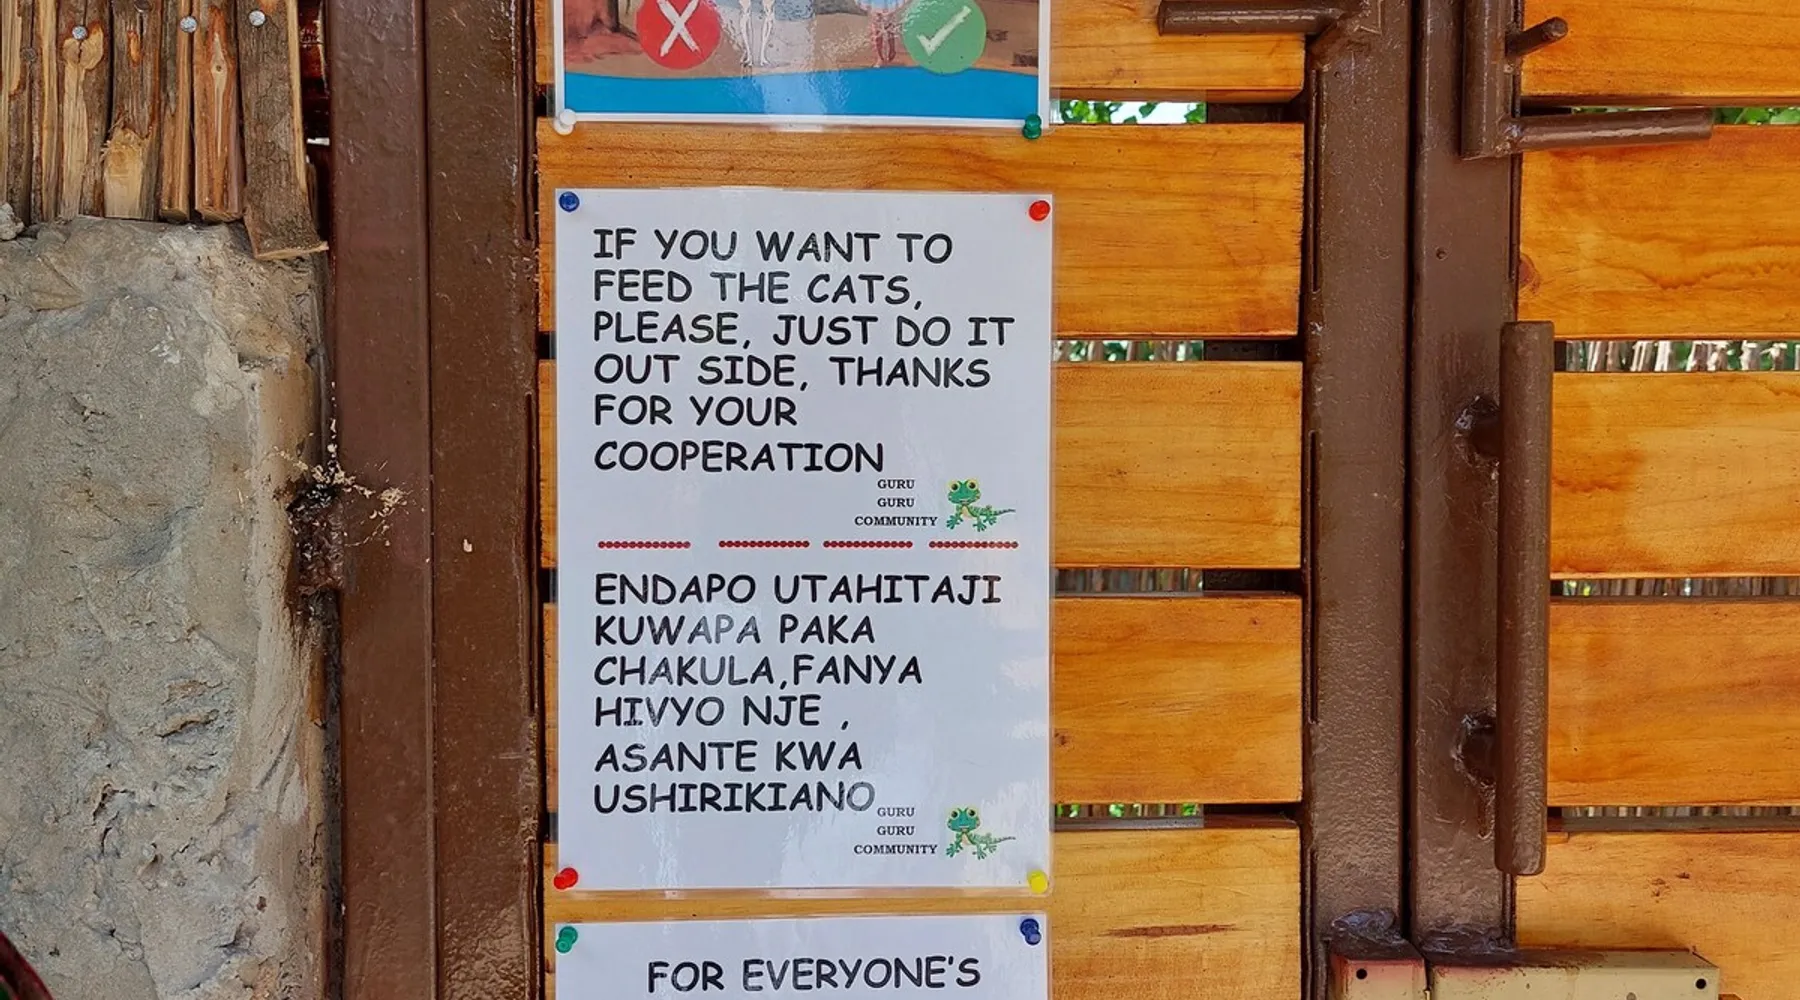 IF YOU WANT TO
FEED THE CATS,
PLEASE, JUST DO IT
OUT SIDE, THANKS
FOR YOUR
COOPERATION
GURU
GURU
COMMUNITY
ENDAPO UTAHITAJI
KUWAPA PAKA
CHAKULA,FANYA
HIVYO NJE ,
ASANTE KWA
USHIRIKIANO
GURU
GURU
COMMUNITY
FOR EVERYONE'S